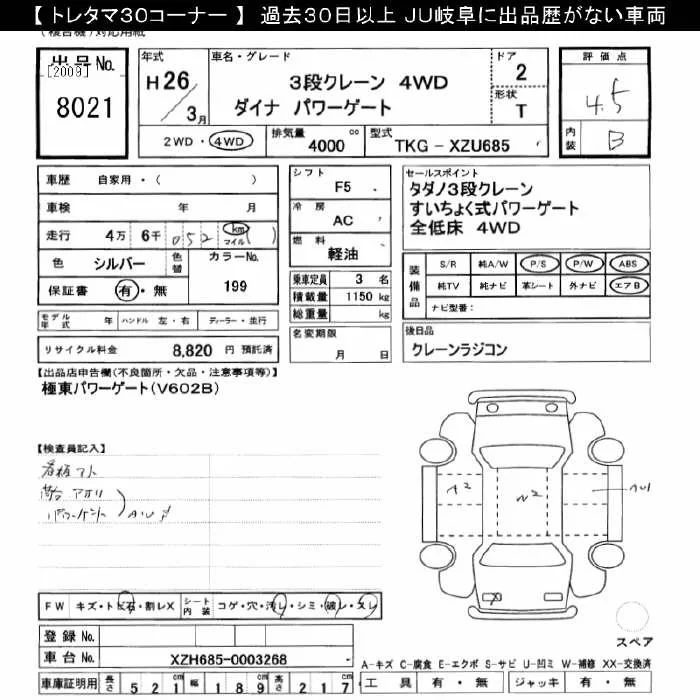 【 トレタマ30コーナー 】 過去30日以上 JU岐阜に出品歴がない車両
(複合機)対応用紙
出品No.
[2009]
8021
年式
H26
3月
車名・グレード
3段クレーン 4WD
ダイナ パワーゲート
ドア
2
形状
T
2WD ・ 4WD
排気量
4000 cc
型式
TKG - XZU685
評価点
4.5
内装
B
車歴 自家用・( )
車検 年 月
走行 4万 6千 052 km マイル ( )
色 シルバー 色替 カラーNo. 199
保証書 有・無
モデル年式 年 ハンドル 左・右 ディーラー・並行
リサイクル料金 8,820 円 預託済
シフト
F5
冷房
AC
燃料
軽油
乗車定員 3 名
積載量 1150 kg
総重量 kg
名変期限
月 日
セールスポイント
タダノ3段クレーン
すいちょく式パワーゲート
全低床 4WD
装備品
S/R 純A/W P/S P/W ABS
純TV 純ナビ 革シート 外ナビ エアB
ナビ型番:
後日品
クレーンラジコン
【出品店申告欄(不良箇所・欠品・注意事項等)】
極東パワーゲート(V602B)
【検査員記入】
看板アト
荷台 アオリ
パワーゲート
AU
A2
W2
AU1
FW キズ・トビ石・割レX シート内装 コゲ・穴・汚レ・シミ・破レ・スレ
登録 No.
車台 No. XZH685-0003268
車庫証明用 長さ 521 cm 幅 189 cm 高さ 217 cm
スペア
A-キズ C-腐食 E-エクボ S-サビ U-凹ミ W-補修 XX-交換済
工具 有・無 ジャッキ 有・無